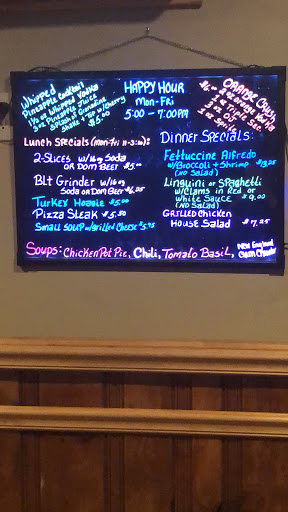 Whipped
Pineapple Cocktail
1½ oz Whipped Vodka
3 oz Pineapple Juice
Splash of Grenadine
Shake & Top w/Cherry
$5.00
HAPPY HOUR
Mon-Fri
5:00 - 7:00PM
ORANGE Crush
$6.00
Triple Sec
Lunch Specials (mon-fri 11-3:30):
2-Slices w/16oz Soda
OR Dom Beer $5.00
BLT Grinder w/16oz
Soda OR Dom Beer $6.25
Turkey Hoagie $5.00
Pizza Steak $5.50
Small Soup w/grilled Cheese $5.75
Dinner Specials:
Fettuccine Alfredo
w/Broccoli + Shrimp $13.25
(NO Salad)
Linguini or Spaghetti
w/Clams in Red or
White Sauce $9.00
(NO Salad)
GRILLED CHICKEN
House Salad $7.25
Soups: Chicken Pot Pie, Chili, Tomato Basil,
New England
Clam Chowder